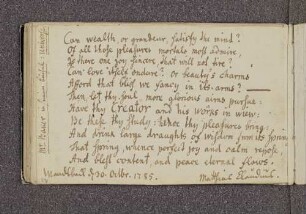 Can wealth or grandeur, satisfy the mind?
Of all those pleasures mortals most admire,
Is there one joy sincere, that will not tire?
Can love itself endure? or beauty's charms
Afford that bliss we fancy in its arms? —
Then, let thy soul, more glorious aims pursue:
Have thy Creator and his works in view:
Be these thy study: hence thy pleasures bring;
And drink large draughts of wisdom from its spring
That spring, whence perfect joy and calm repose,
And blest content, and peace eternal flows.
30. Octbr. 1785.